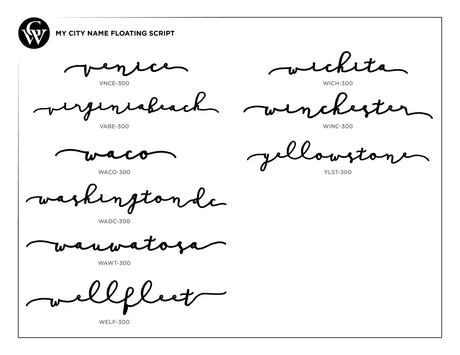 CW
MY CITY NAME FLOATING SCRIPT
venice
VNCE-300
virginiabeach
VABE-300
waco
WACO-300
washingtondc
WADC-300
wauwatosa
WAWT-300
wellfleet
WELF-300
wichita
WICH-300
winchester
WINC-300
yellowstone
YLST-300